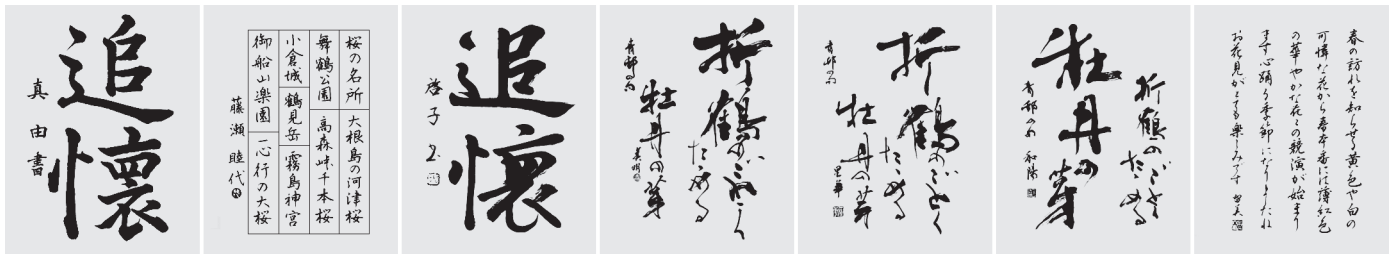 追懐
真由書
桜の名所
大根島の河津桜
舞鶴公園
高森峠千本桜
小倉城
鶴見岳
霧島神宮
御船山楽園
一心行の大桜
藤瀬睦代
追懐
啓子書
折鶴のごとく
たゝめる
牡丹の芽
青邨の句
美明
折鶴のごとく
たゝめる
牡丹の芽
青邨の句
折鶴のごとく
たゝめる
牡丹の芽
青邨の句
和陽
春の訪れを知らせる黄色や白の
可憐な花から春本番には薄紅色
の華やかな花々の競演が始まり
ます心踊る季節になりましたね
お花見がとても楽しみです